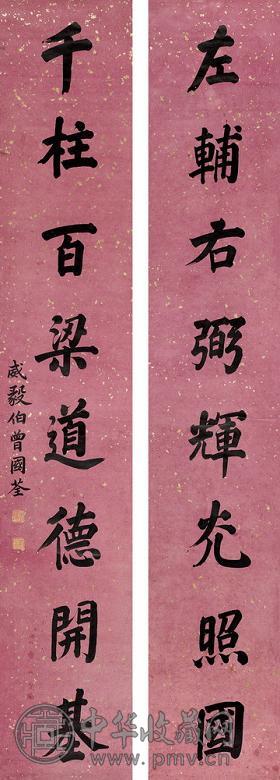 左輔右弼輝光照國
千柱百梁道德開基
威毅伯曾國荃
中华收藏网
www.pmv.cn